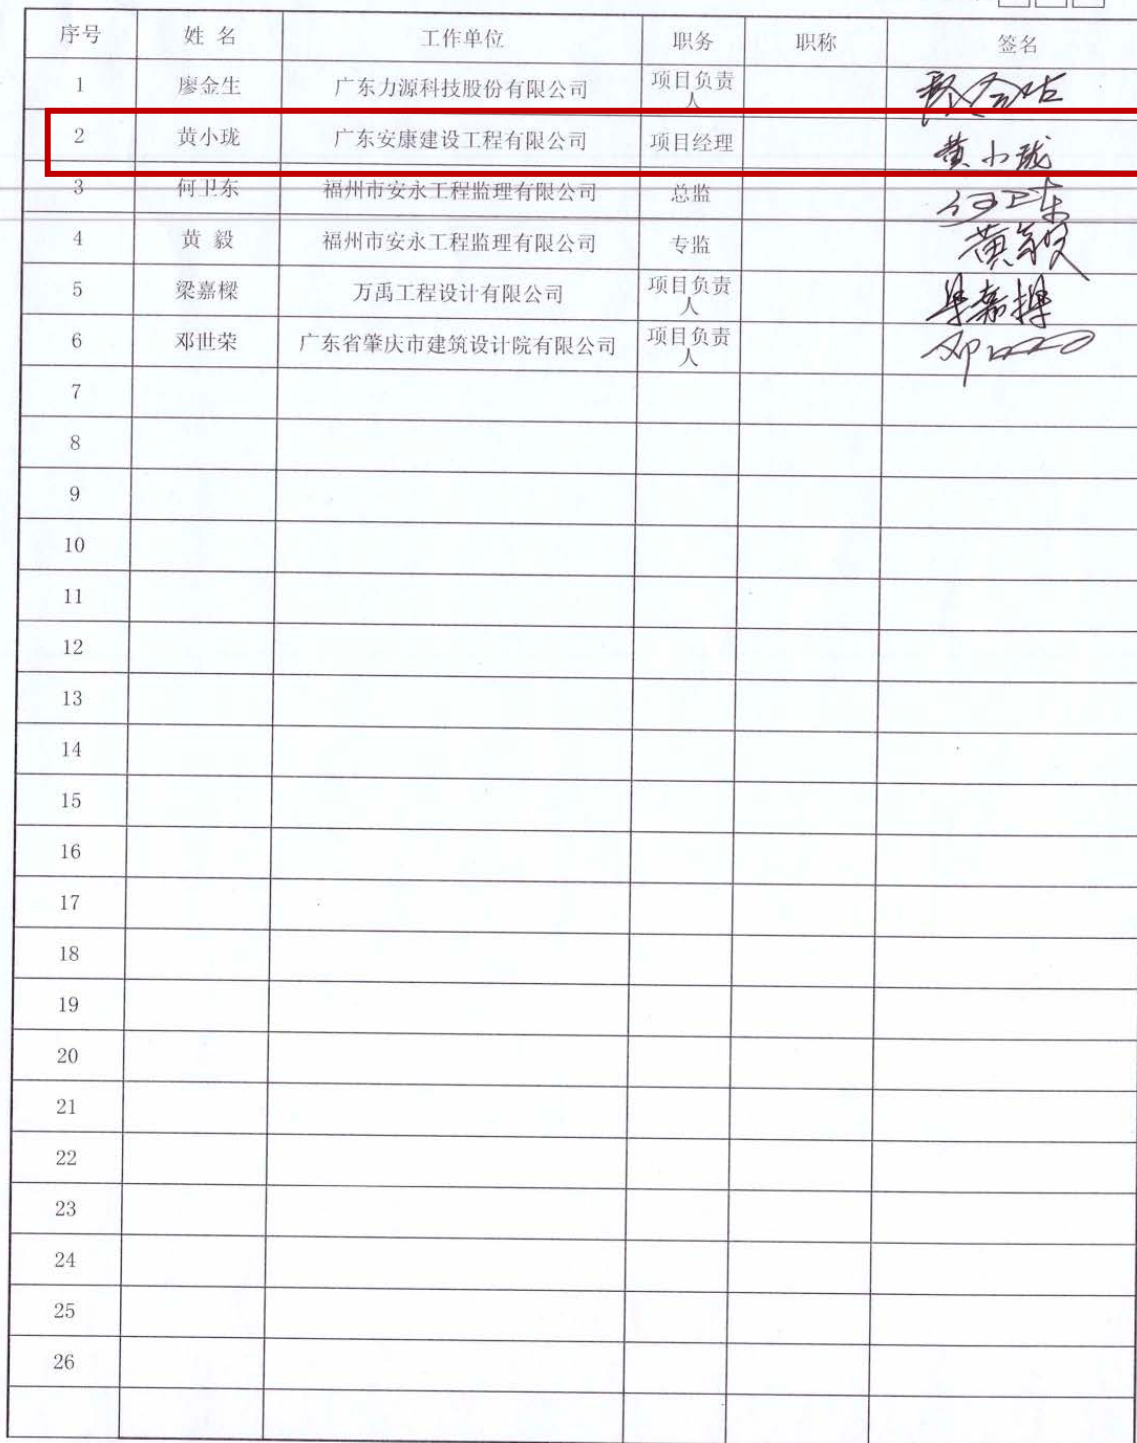 序号 姓 名 工作单位 职务 职称 签名
1 廖金生 广东力源科技股份有限公司 项目负责人 廖金生
2 黄小珑 广东安康建设工程有限公司 项目经理 黄小珑
3 何卫东 福州市安永工程监理有限公司 总监 何卫东
4 黄 毅 福州市安永工程监理有限公司 专监 黄毅
5 梁嘉樑 万禹工程设计有限公司 项目负责人 梁嘉樑
6 邓世荣 广东省肇庆市建筑设计院有限公司 项目负责人
7
8
9
10
11
12
13
14
15
16
17
18
19
20
21
22
23
24
25
26